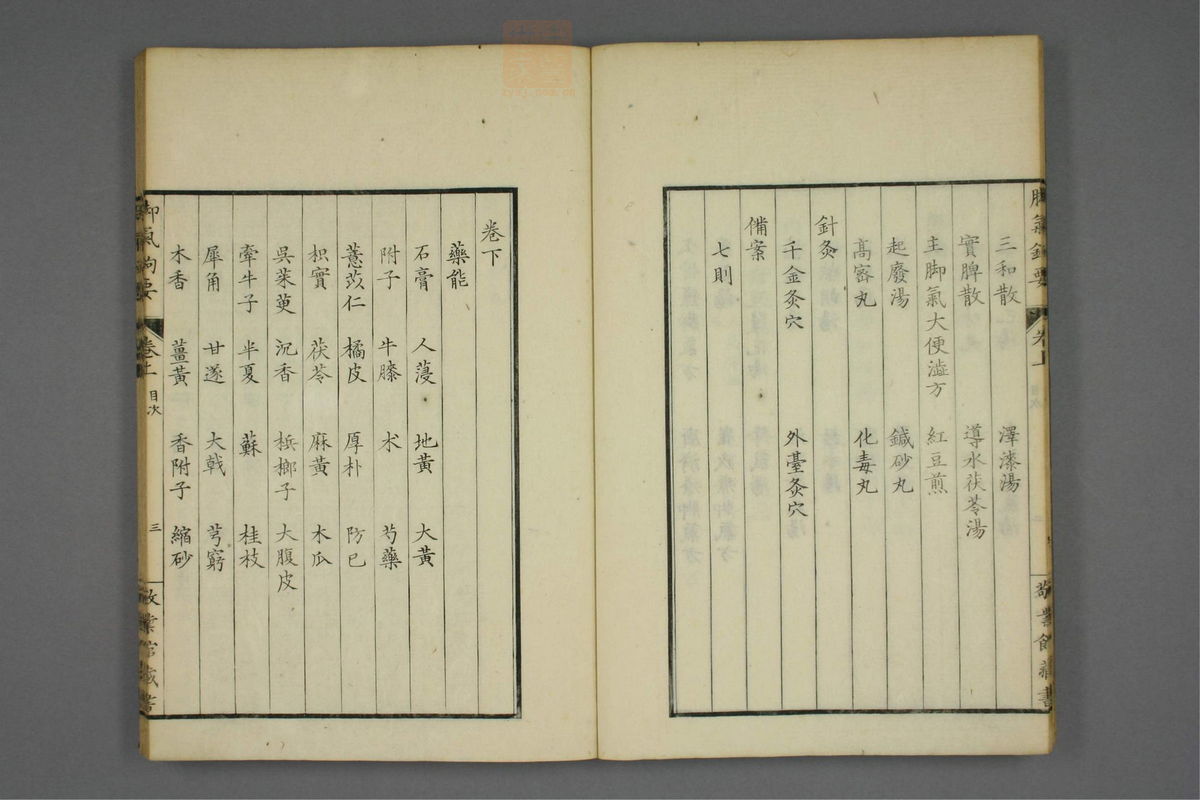 脚氣鉤要 卷上 目次 敬業館藏書
三和散 澤漆湯
實脾散 導水茯苓湯
主脚氣大便澁方 紅豆煎
起廢湯 鍼砂丸
高密丸 化毒丸
針灸
千金灸穴 外臺灸穴
備案
七則
卷下
藥能
石膏 人薓 地黃 大黃
附子 牛膝 朮 芍藥
薏苡仁 橘皮 厚朴 防已
枳實 茯苓 麻黃 木瓜
吳茱萸 沉香 梹榔子 大腹皮
牽牛子 半夏 蘇 桂枝
犀角 甘遂 大戟 芎窮
木香 薑黃 香附子 縮砂
脚氣鉤要 卷上 目次 三 敬業館藏書